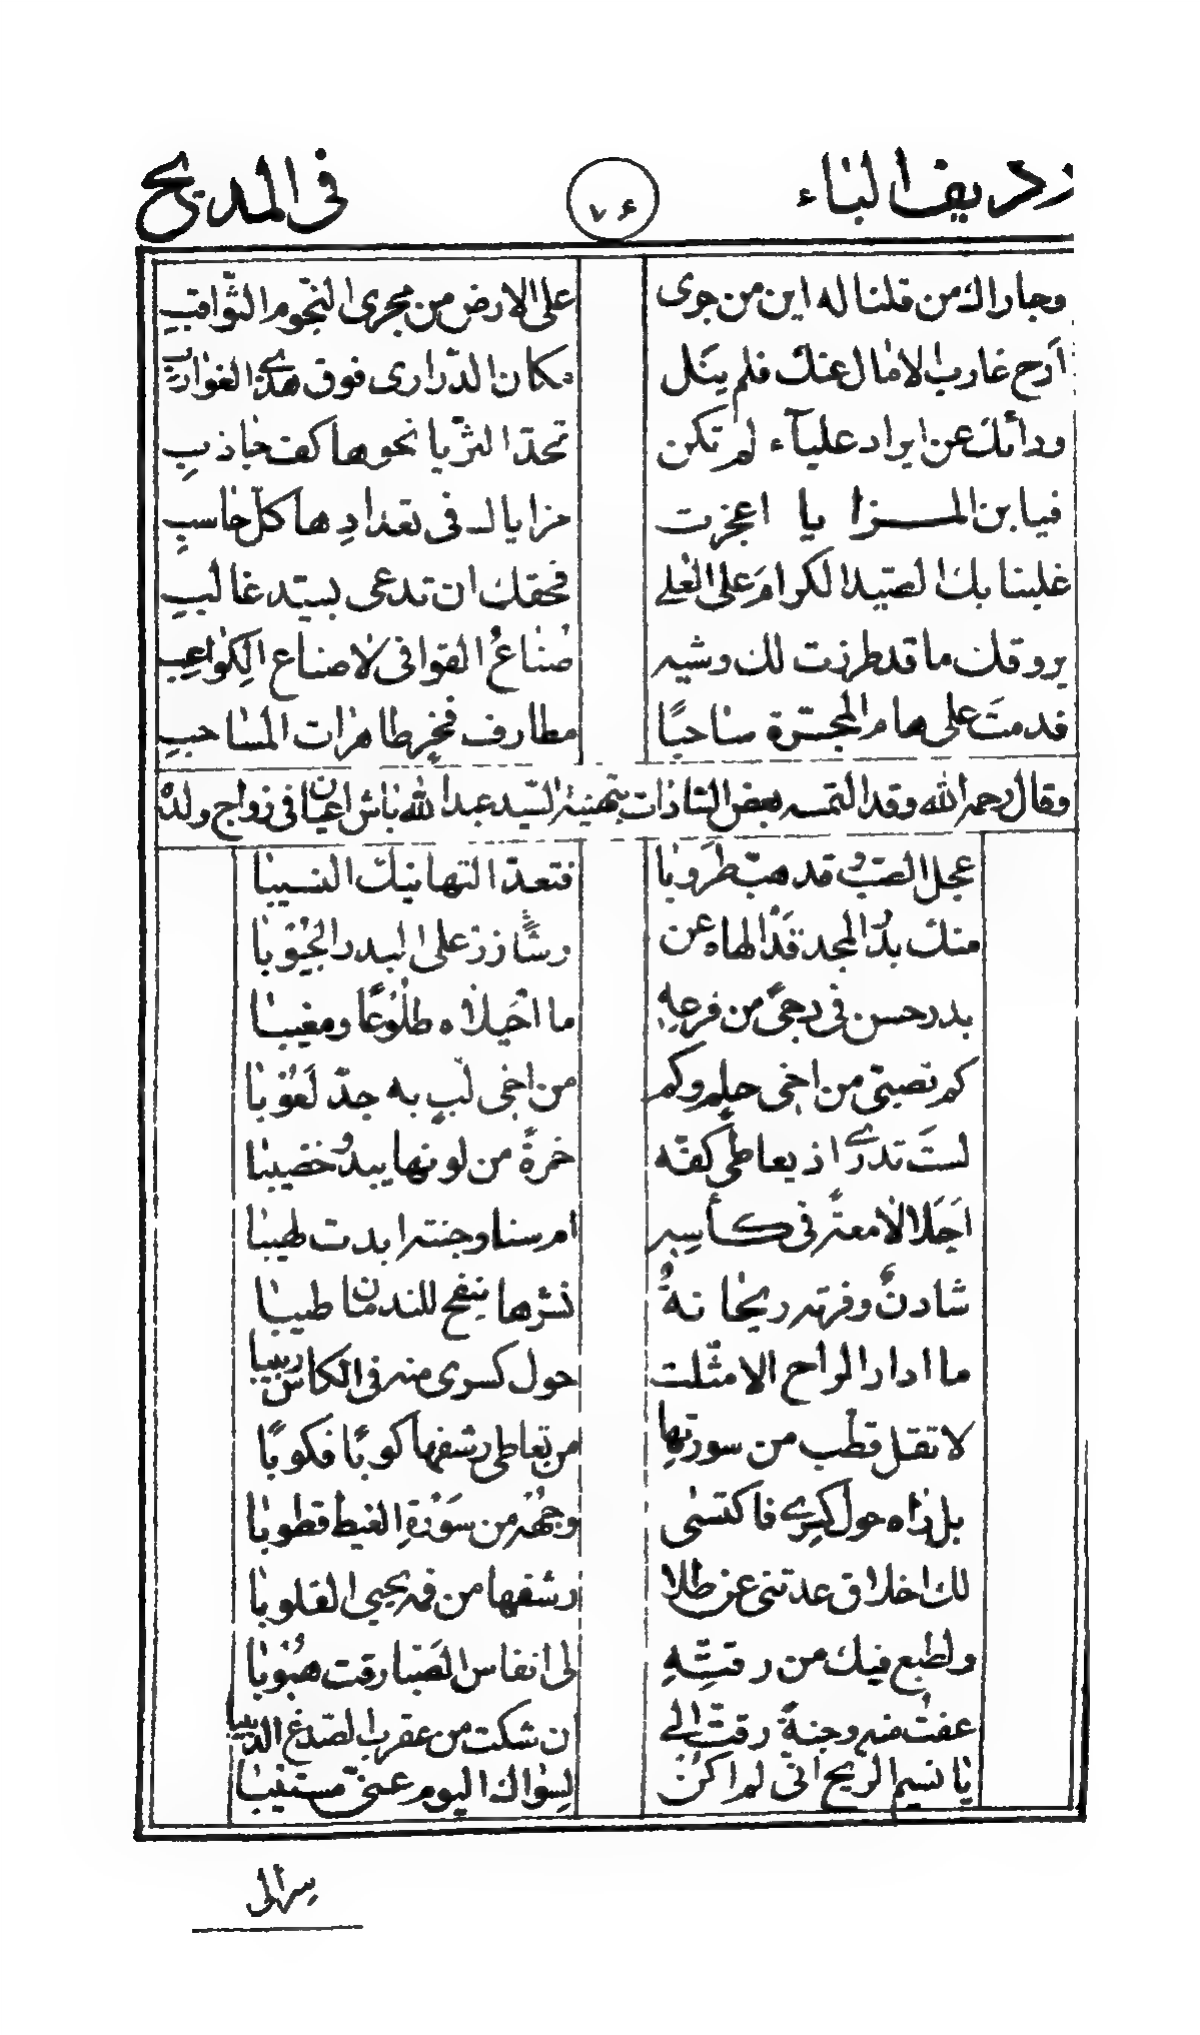 رديف الباء ٧٤ في المديح
وجاراك من قلنا له اين من جرى على الارض من مجرى النجوم الثواقب
أرح غارب الامال عنك فلم ينل مكان الدراري فوق هذي الغوارب
ودائك عن ايراد علياء لم تكن تحد الثريا نحوها كف جاذب
فيا بن المزايا اعجزت مزاياك في تعدادها كل حاسب
غلبنا بك الصيد الكرام على العلى فحقك ان تدعى بسيد غالب
يروقك ما قد طرزت لك وشيه صناع القوافي لا صناع الكواعب
قدمت على هام المجرة ساحبا مطارف فخر طاهرات المساحب
وقال رحمه الله وقد التمسه بعض السادات بتهنية السيد عبد الله باش اعيان في زواج ولده
عجل الصب وقد هب طروبا فتعد التهانيك النسيبا
منك بدء المجد قد الهاه عن رشأ زر على البدر الجيوبا
بدر حسن في دجى من فرعه ما احيلاه طلوعا ومغيبا
كم تصبى من اخي حلم وكم من اخي لب به جد لعوبا
لست تدري اذ يعاطي كفه خمرة من لونها يبدو خضيبا
اجلا لا معة في كأسه ام سنا وجنته ابدت لهيبا
شادن وفرته ريحانة نشرها ينفح للندمان طيبا
ما ادار الراح الا مثلت حول كسرى منه في الكاس ربيبا
لا تقل قطب من سورتها من تعاطى رشفها كوبا فكوبا
بل رآه حول كسرى فاكتسى وجهه من سورة الغيظ قطوبا
لك اخلاق عدتني عن طلا رشفها من فمه يحيي القلوبا
ولطبع فيك من رقته لي انفاس الصبا رقت هبوبا
عفت منه وجنة رقت الى ان شكت من عقرب الصدغ الدبيبا
يا نسيم الريح اني لم اكن لسواك اليوم عني مستنيبا
سر الى